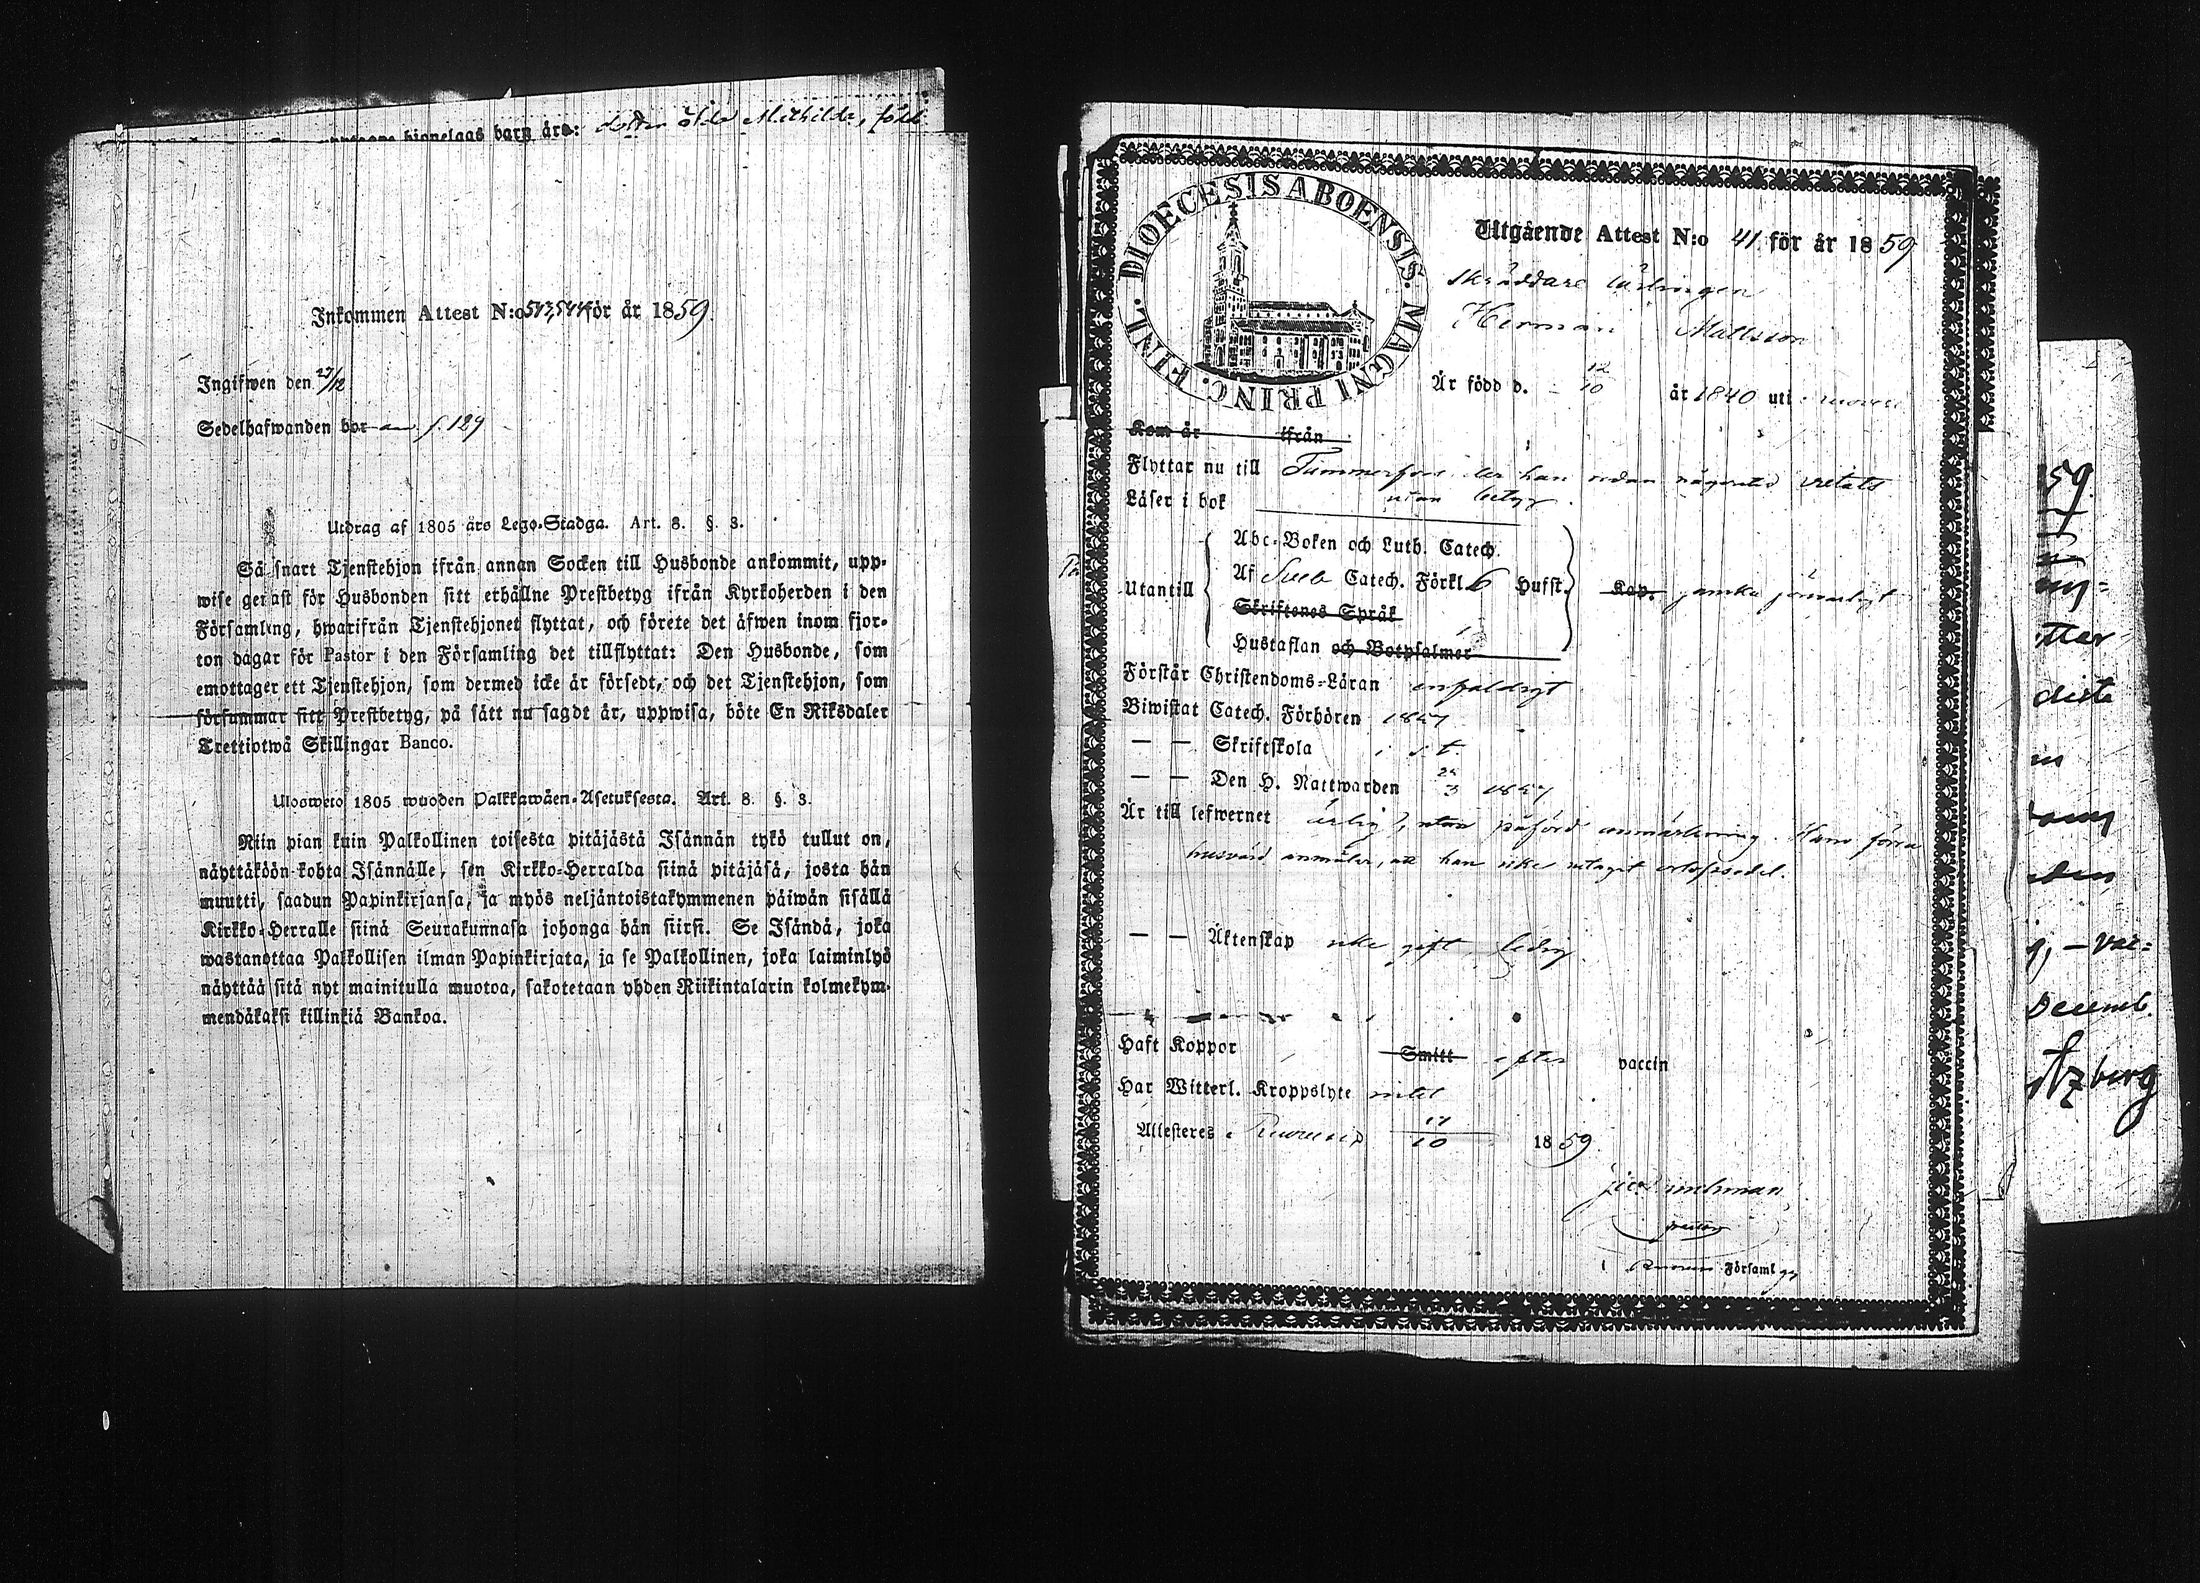 hionelags barn äro: dotter Ida Mathilda, född
Inkommen Attest N:o 543,544 för år 1859.
Ingifwen den 27/12
Sedelhafwanden bor f. 129
Utdrag af 1805 års Lego-Stadga. Art. 8. §. 3.
Så snart Tjenstehjon ifrån annan Socken till Husbonde ankommit, upp-
wise genast för Husbonden sitt erhållne Prestbetyg ifrån Kyrkoherden i den
Församling, hwarifrån Tjenstehjonet flyttat, och förete det äfwen inom fjor-
ton dagar för Pastor i den Församling det tillflyttat: Den Husbonde, som
emottager ett Tjenstehjon, som dermed icke är försedt, och det Tjenstehjon, som
försummar sitt Prestbetyg, på sätt nu sagdt är, uppwisa, böte En Riksdaler
Trettiotwå Skillingar Banco.
Ulosweto 1805 wuoden Palkkawäen-Asetuksesta. Art. 8. §. 3.
Niin pian kuin Palkollinen toisesta pitäjästä Isännän tykö tullut on,
näyttäköön kohta Isännälle, sen Kirkko-Herralda siinä pitäjäsä, josta hän
muutti, saadun Papinkirjansa, ja myös neljäntoistakymmenen päiwän sisällä
Kirkko-Herralle siinä Seurakunnasa johonga hän siirsi. Se Isändä, joka
wastanottaa Palkollisen ilman Papinkirjata, ja se Palkollinen, joka laiminlyö
näyttää sitä nyt mainitulla muotoa, sakotetaan yhden Riikintalarin kolmekym-
mendäkaksi killinkiä Bankoa.
DIOECESIS ABOENSIS. MAGNI PRINC. FINL.
Utgående Attest N:o 41 för år 1859
Skräddare lärlingen
Herman Mattsson
Är född d. 12/10 år 1840 uti
Kom år ifrån
Flyttar nu till Tammerfors der han redan någon tid vistats
Läser i bok utan betyg.
Abc-Boken och Luth. Catech.
Utantill Af Sveb Catech. Förkl. 6 Hufst. Kap. ganska försvarligt
Skriftenes Språk
Hustaflan och Botpsalmer
Förstår Christendoms-Läran enfaldigt
Biwistat Catech. Förhören 1857
— — Skriftskola s. å.
— — Den H. Nattwarden 1857
Är till lefwernet ärlig, utan påförd anmärkning. Hans förra
husvärd anmäler, att han icke uttagit orlofssedel.
— — Äktenskap icke gift, ledig.
Haft Koppor Smitt efter vaccin
Har Witterl. Kroppslyte intet
Attesteres i Ruovesi 17/10 1859
pastor
i Ruovesi Församlg
59.
ny-
ttar
diste
den
g, – var-
Decemb.
tzberg